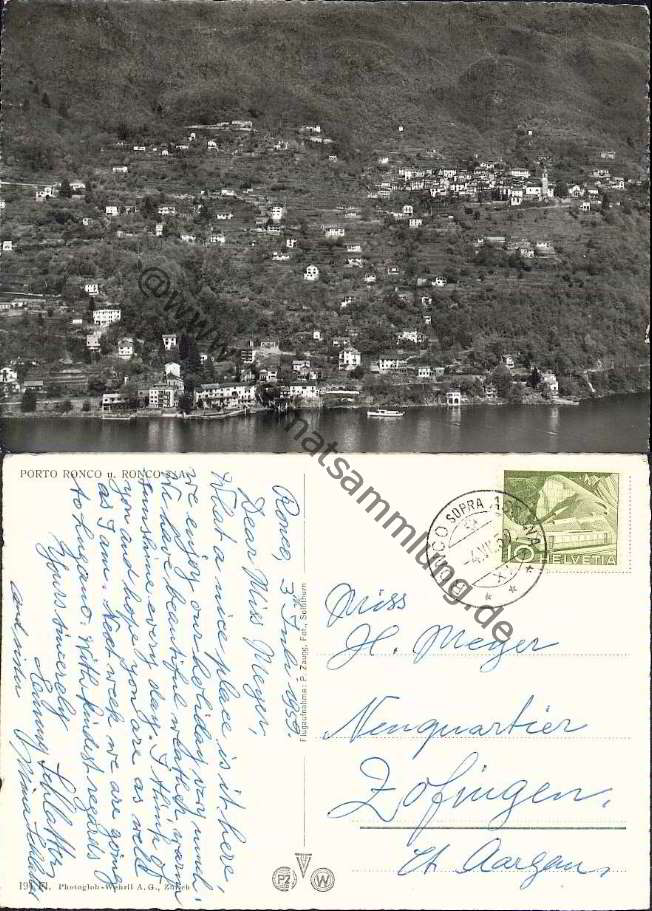 PORTO RONCO u. RONCO s/A.
Ronco, 3. July 1950
Dear Miss Meyer,
What a nice place is it here,
we enjoy our holiday very much.
We have beautiful weather, warm
sunshine every day. I think of
you and hope you are as well
as I am. Next week we are going
to Lugano. With kindest regards
Yours sincerely
Schlatter
and
Flugaufnahme: P. Zaugg, Fot., Solothurn
RONCO SOPRA ASCONA
HELVETIA
Miss
H. Meyer
Neuquartier
Zofingen,
Kt. Aargau.
Photoglob-Wehrli A.G., Zürich
PZ
W
matsammlung.de
@www.